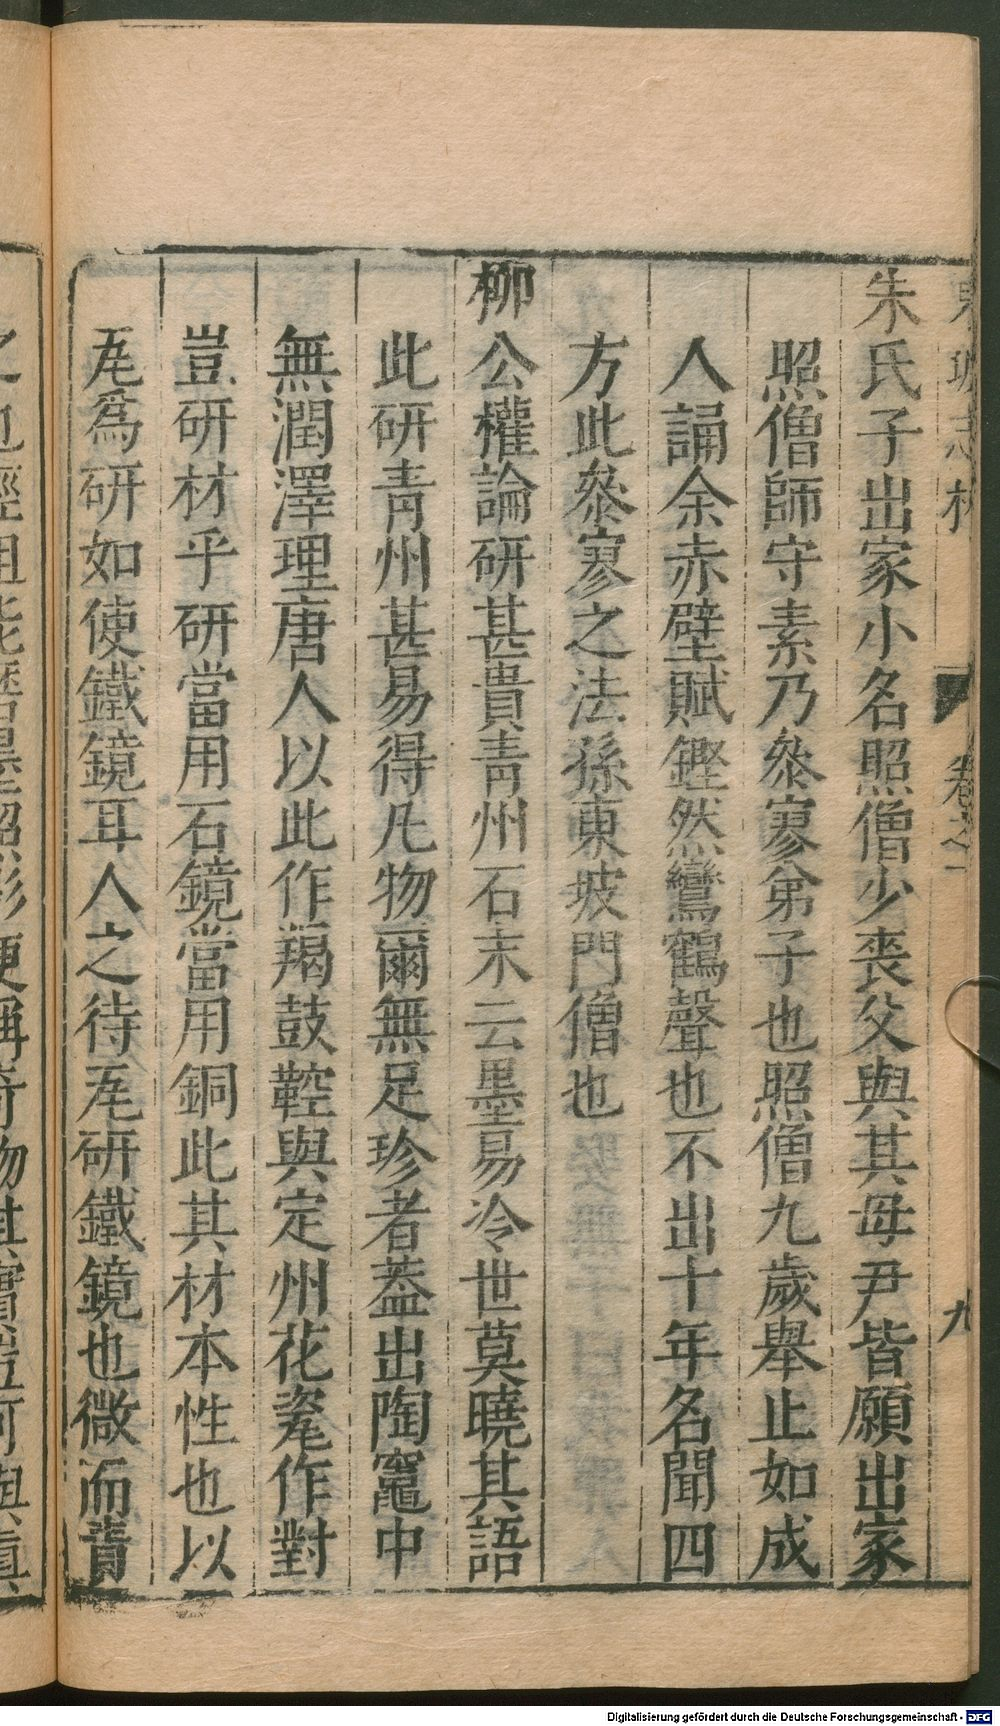 東坡志林 卷之一 九
朱氏子出家小名照僧少喪父與其母尹皆願出家
照僧師守素乃叅寥弟子也照僧九歲舉止如成
人誦余赤壁賦鏗然鸞鶴聲也不出十年名聞四
方此叅寥之法孫東坡門僧也
柳公權論研甚貴青州石末云墨易冷世莫曉其語
此研青州甚易得凡物爾無足珍者蓋出陶竈中
無潤澤理唐人以此作羯鼓鞚與定州花瓷作對
豈研材乎研當用石鏡當用銅此其材本性也以
瓦爲研如使鐵鏡耳人之待瓦研鐵鏡也微而責
Digitalisierung gefördert durch die Deutsche Forschungsgemeinschaft - DFG